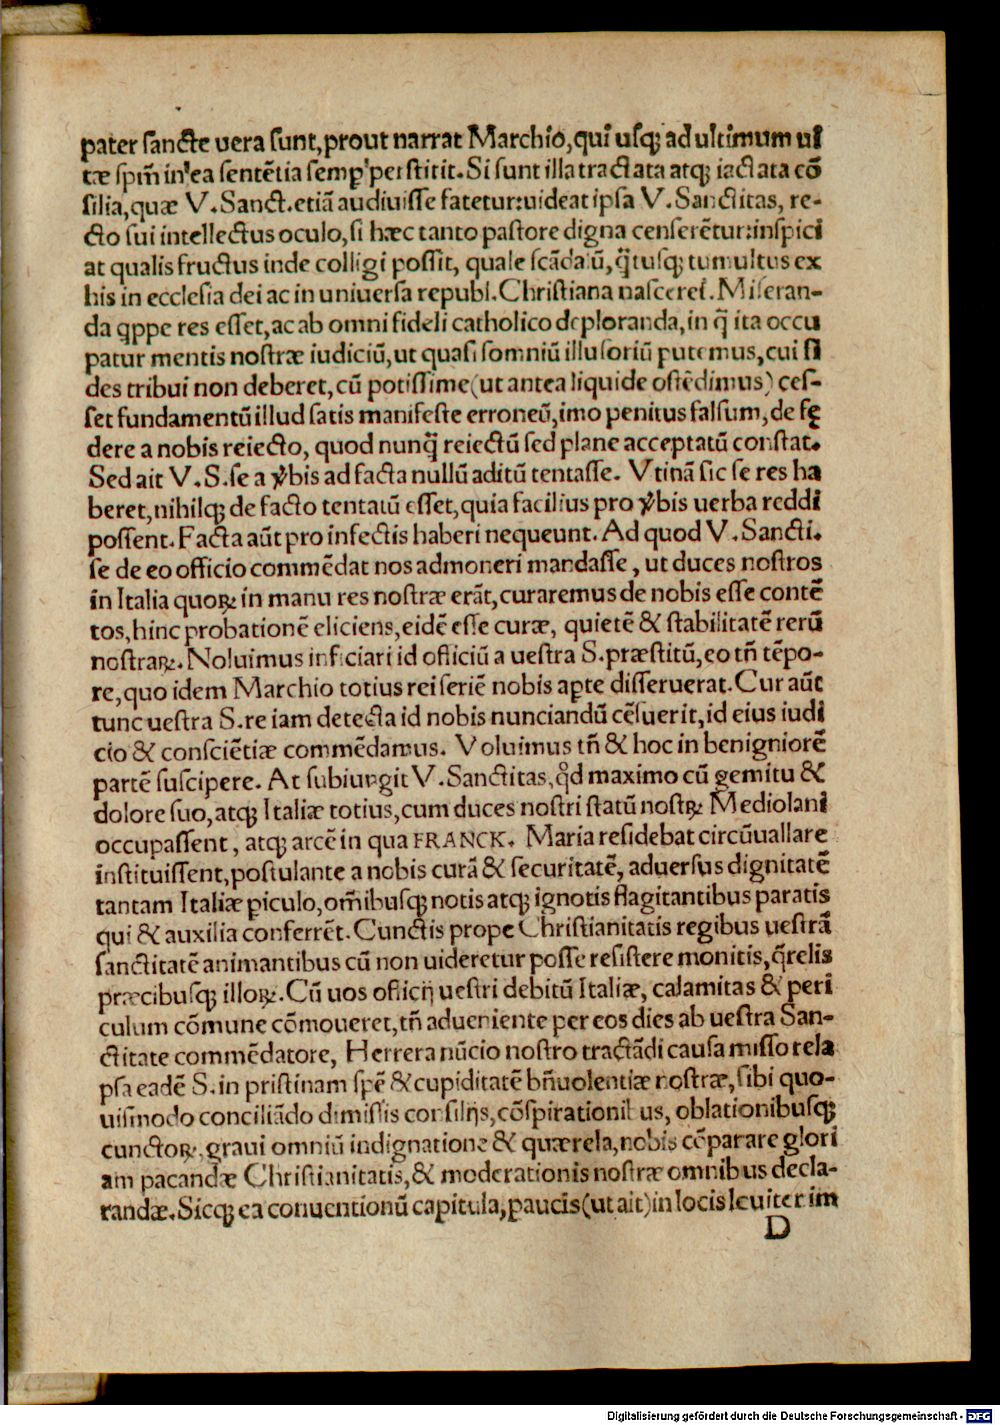 pater sancte uera sunt, prout narrat Marchio, qui usq; ad ultimum ui
tæ spm̃ in ea sentẽtia semp perstitit. Si sunt illa tractata atq; iactata cõ
silia, quæ V. Sanct. etiã audiuisse fatetur: uideat ipsa V. Sanctitas, re-
cto sui intellectus oculo, si hæc tanto pastore digna censerẽtur: inspici
at qualis fructus inde colligi possit, quale scãdalũ, q̃tusq; tumultus ex
his in ecclesia dei ac in uniuersa republ. Christiana nasceret̃. Miseran-
da qppe res esset, ac ab omni fideli catholico deploranda, in q̃ ita occu
patur mentis nostræ iudiciũ, ut quasi somniũ illusoriũ putemus, cui fi
des tribui non deberet, cũ potissime (ut antea liquide ostẽdimus) ces-
set fundamentũ illud satis manifeste erroneũ, imo penitus falsum, de fę
dere a nobis reiecto, quod nunq̃ reiectũ sed plane acceptatũ constat.
Sed ait V. S. se a v̾bis ad facta nullũ aditũ tentasse. Vtinã sic se res ha
beret, nihilq; de facto tentatũ esset, quia facilius pro v̾bis uerba reddi
possent. Facta aũt pro infectis haberi nequeunt. Ad quod V. Sancti.
se de eo officio commẽdat nos admoneri mandasse, ut duces nostros
in Italia quoꝝ in manu res nostræ erãt, curaremus de nobis esse contẽ
tos, hinc probationẽ eliciens, eidẽ esse curæ, quietẽ & stabilitatẽ rerũ
nostraꝝ. Noluimus inficiari id officiũ a uestra S. præstitũ, eo tñ tẽpo-
re, quo idem Marchio totius rei seriẽ nobis apte disseruerat. Cur aũt
tunc uestra S. re iam detecta id nobis nunciandũ cẽsuerit, id eius iudi
cio & consciẽtiæ commẽdamus. Voluimus tñ & hoc in benigniorẽ
partẽ suscipere. At subiungit V. Sanctitas, qd̾ maximo cũ gemitu &
dolore suo, atq; Italiæ totius, cum duces nostri statũ nostꝝ Mediolani
occupassent, atq; arcẽ in qua FRANCK. Maria residebat circũuallare
instituissent, postulante a nobis curã & securitatẽ, aduersus dignitatẽ
tantam Italiæ piculo, om̃ibusq; notis atq; ignotis flagitantibus paratis
qui & auxilia conferrẽt. Cunctis prope Christianitatis regibus uestrã
sanctitatẽ animantibus cũ non uideretur posse resistere monitis, q̃relis
præcibusq; illoꝝ. Cũ uos officij uestri debitũ Italiæ, calamitas & peri
culum cõmune cõmoueret, tñ adueniente per eos dies ab uestra San-
ctitate commẽdatore, Herrera nũcio nostro tractãdi causa misso rela
psa eadẽ S. in pristinam spẽ & cupiditatẽ bñuolentiæ nostræ, sibi quo-
uismodo conciliãdo dimissis consilijs, cõspirationibus, oblationibusq;
cunctoꝝ, graui omniũ indignatione & quærela, nobis cẽparare glori
am pacandæ Christianitatis, & moderationis nostræ omnibus decla-
randæ. Sicq; ea conuentionũ capitula, paucis (ut ait) in locis leuiter im
D
Digitalisierung gefördert durch die Deutsche Forschungsgemeinschaft - DFG